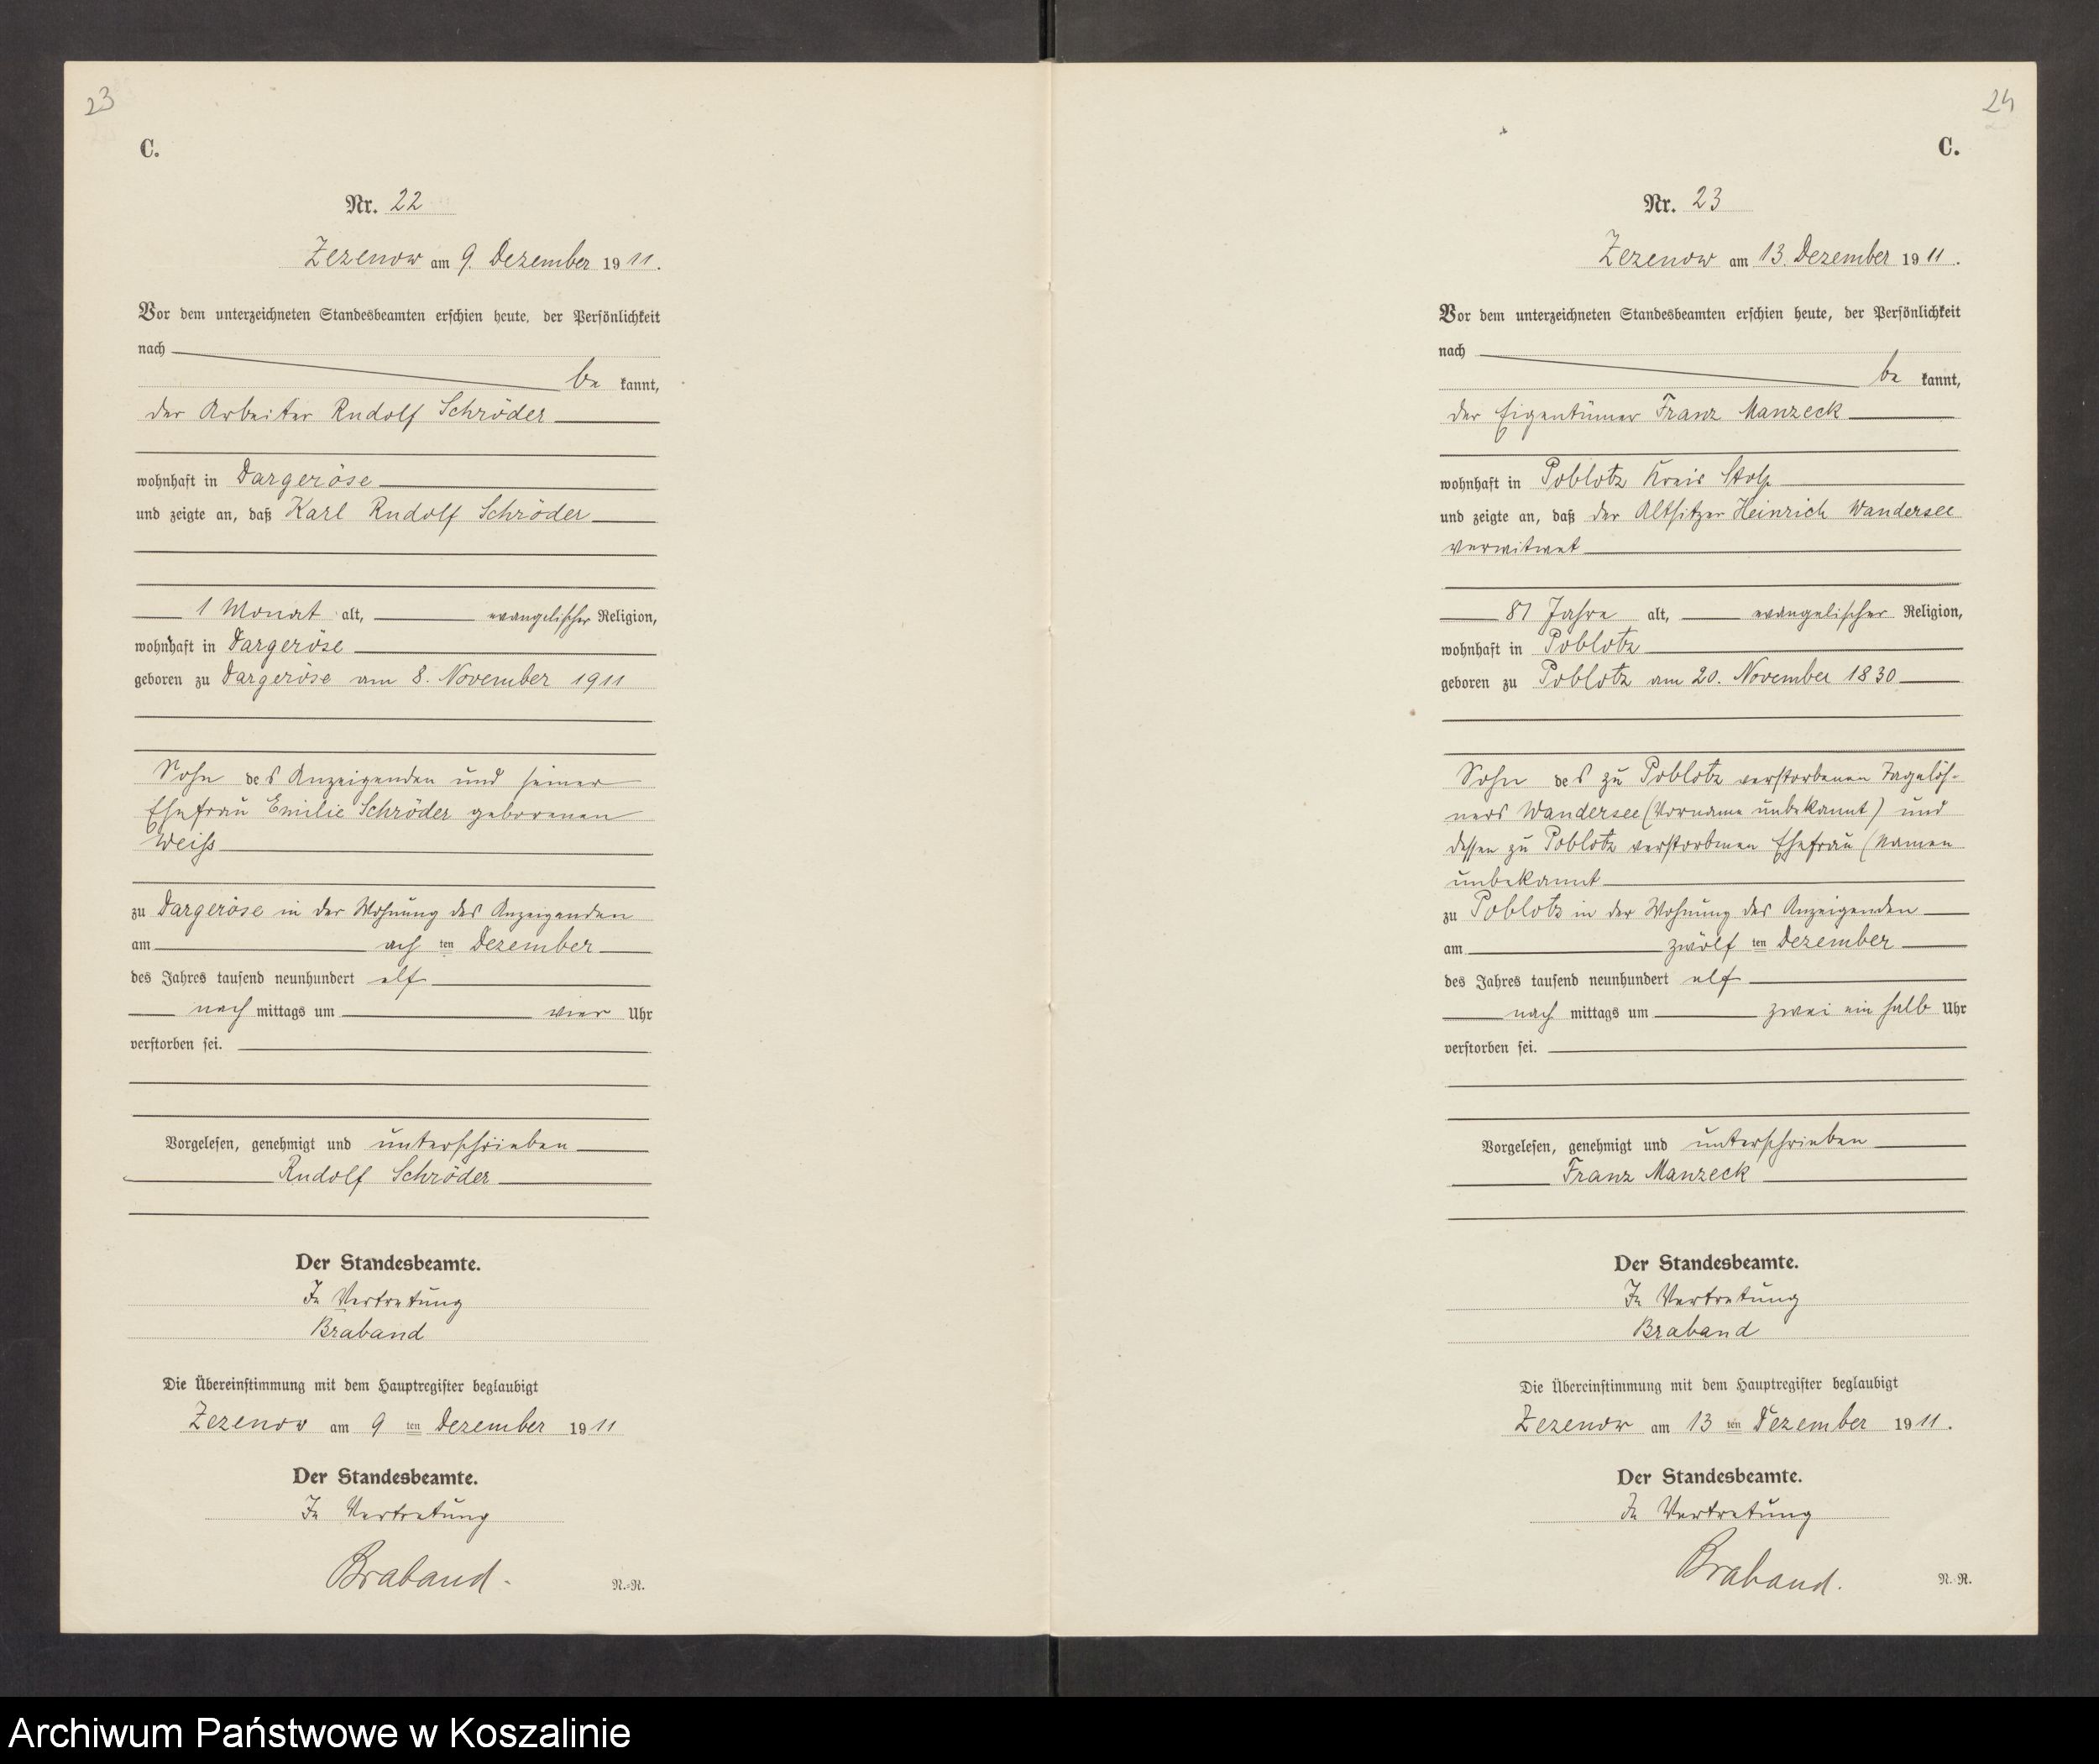 23
C.
Nr. 22
Zezenow am 9. Dezember 1911.
Vor dem unterzeichneten Standesbeamten erschien heute, der Persönlichkeit
nach
be kannt,
der Arbeiter Rudolf Schröder
wohnhaft in Dargeröse
und zeigte an, daß Karl Rudolf Schröder
1 Monat alt, evangelischer Religion,
wohnhaft in Dargeröse
geboren zu Dargeröse am 8. November 1911
Sohn des Anzeigenden und seiner
Ehefrau Emilie Schröder geborenen
Weiß
zu Dargeröse in der Wohnung des Anzeigenden
am ach ten Dezember
des Jahres tausend neunhundert elf
nach mittags um vier Uhr
verstorben sei.
Vorgelesen, genehmigt und unterschrieben
Rudolf Schröder
Der Standesbeamte.
In Vertretung
Braband
Die Übereinstimmung mit dem Hauptregister beglaubigt
Zezenow am 9 ten Dezember 1911
Der Standesbeamte.
In Vertretung
Braband.
N.=R.
24
C.
Nr. 23
Zezenow am 13. Dezember 1911.
Vor dem unterzeichneten Standesbeamten erschien heute, der Persönlichkeit
nach
be kannt,
der Eigentümer Franz Manzeck
wohnhaft in Poblotz Kreis Stolp
und zeigte an, daß der Altsitzer Heinrich Wandersee
verwitwet
81 Jahre alt, evangelischer Religion,
wohnhaft in Poblotz
geboren zu Poblotz am 20. November 1830
Sohn des zu Poblotz verstorbenen Tagelöh-
ners Wandersee (Vorname unbekannt) und
dessen zu Poblotz verstorbenen Ehefrau (Namen
unbekannt
zu Poblotz in der Wohnung des Anzeigenden
am zwölf ten Dezember
des Jahres tausend neunhundert elf
nach mittags um zwei ein halb Uhr
verstorben sei.
Vorgelesen, genehmigt und unterschrieben
Franz Manzeck
Der Standesbeamte.
In Vertretung
Braband
Die Übereinstimmung mit dem Hauptregister beglaubigt
Zezenow am 13 ten Dezember 1911.
Der Standesbeamte.
In Vertretung
Braband.
N. R.
Archiwum Państwowe w Koszalinie